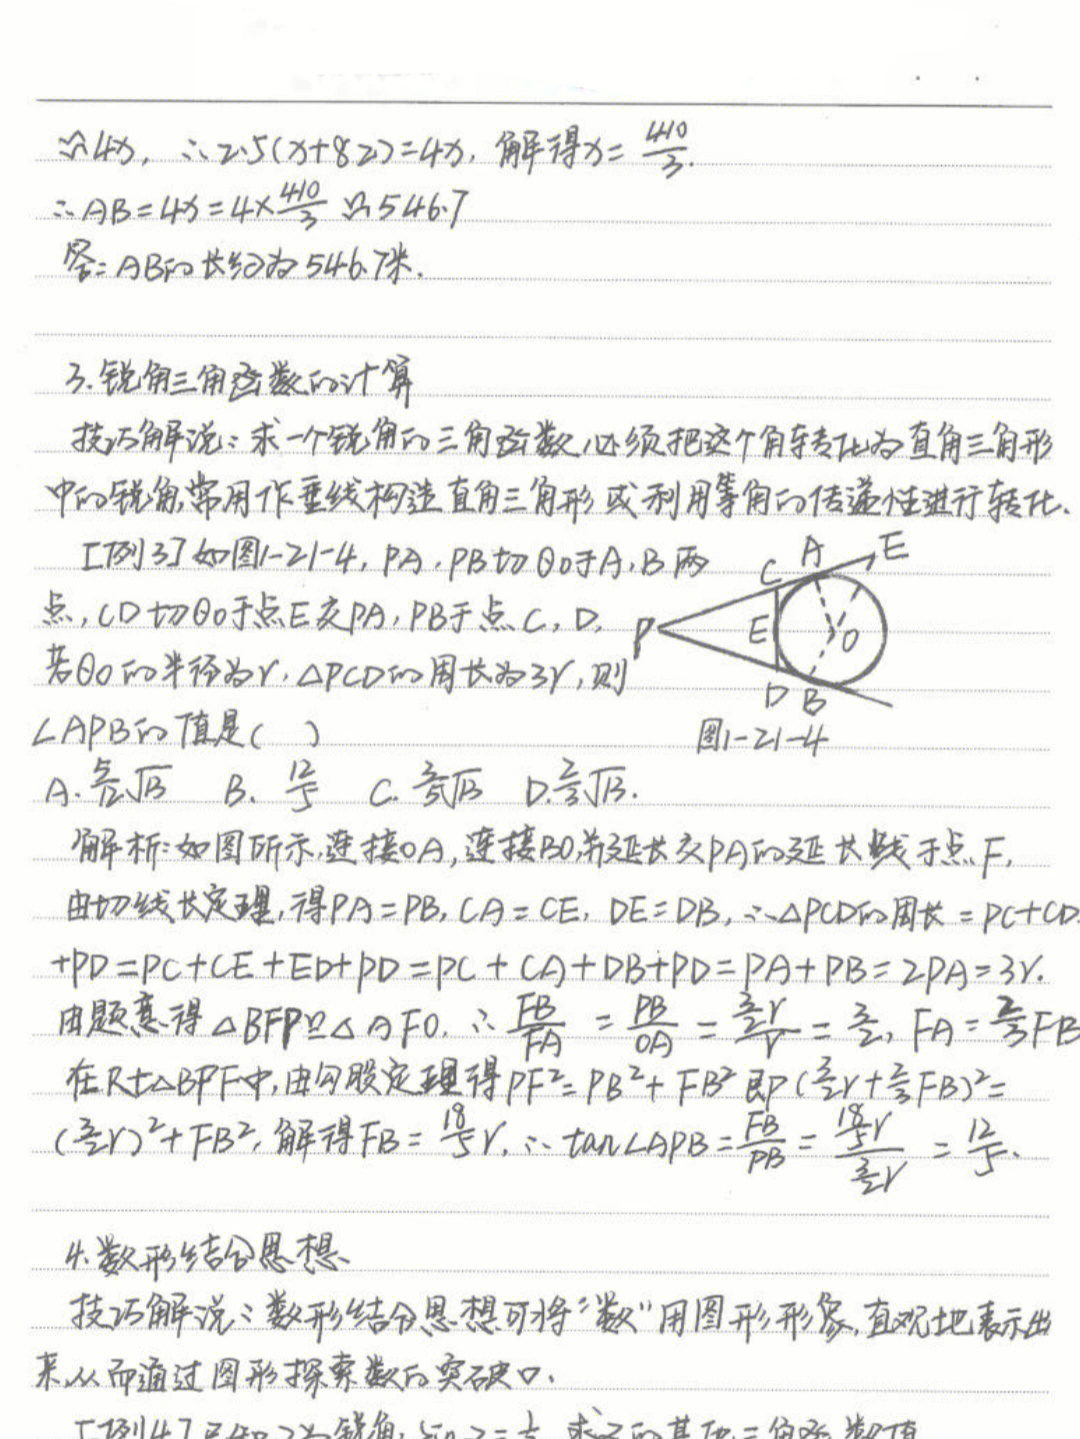 ≈4x, ∴2.5(x+82)=4x, 解得x=410/3.
∴AB=4x=4×410/3≈546.7
答:AB的长约为546.7米.
3.锐角三角函数的计算
技巧解说:求一个锐角的三角函数,必须把这个角转化为直角三角形
中的锐角,常用作垂线构造直角三角形或利用等角的传递性进行转化.
[例3]如图1-21-4,PA,PB切⊙O于A,B两
点,CD切⊙O于点E交PA,PB于点C,D,
若⊙O的半径为r,△PCD的周长为3r,则
∠APB的值是( )
A. 5/12√13 B. 12/5 C. 3/5√13 D. 2/3√13.
P C A E E O D B
图1-21-4
解析:如图所示,连接OA,连接BO,并延长交PA的延长线于点F,
由切线长定理,得PA=PB,CA=CE,DE=DB,∴△PCD的周长=PC+CD
+PD=PC+CE+ED+PD=PC+CA+DB+PD=PA+PB=2PA=3r.
由题意得△BFP∽△AFO,∴FB/FA=PB/OA=(3/2)r/r=3/2, FA=2/3FB
在Rt△BPF中,由勾股定理得PF²=PB²+FB²即(3/2r+2/3FB)²=
(3/2r)²+FB²,解得FB=18/5r,∴tan∠APB=FB/PB=(18/5r)/(3/2r)=12/5.
4.数形结合思想
技巧解说:数形结合思想可将“数”用图形形象,直观地表示出
来,从而通过图形探索数的突破口.